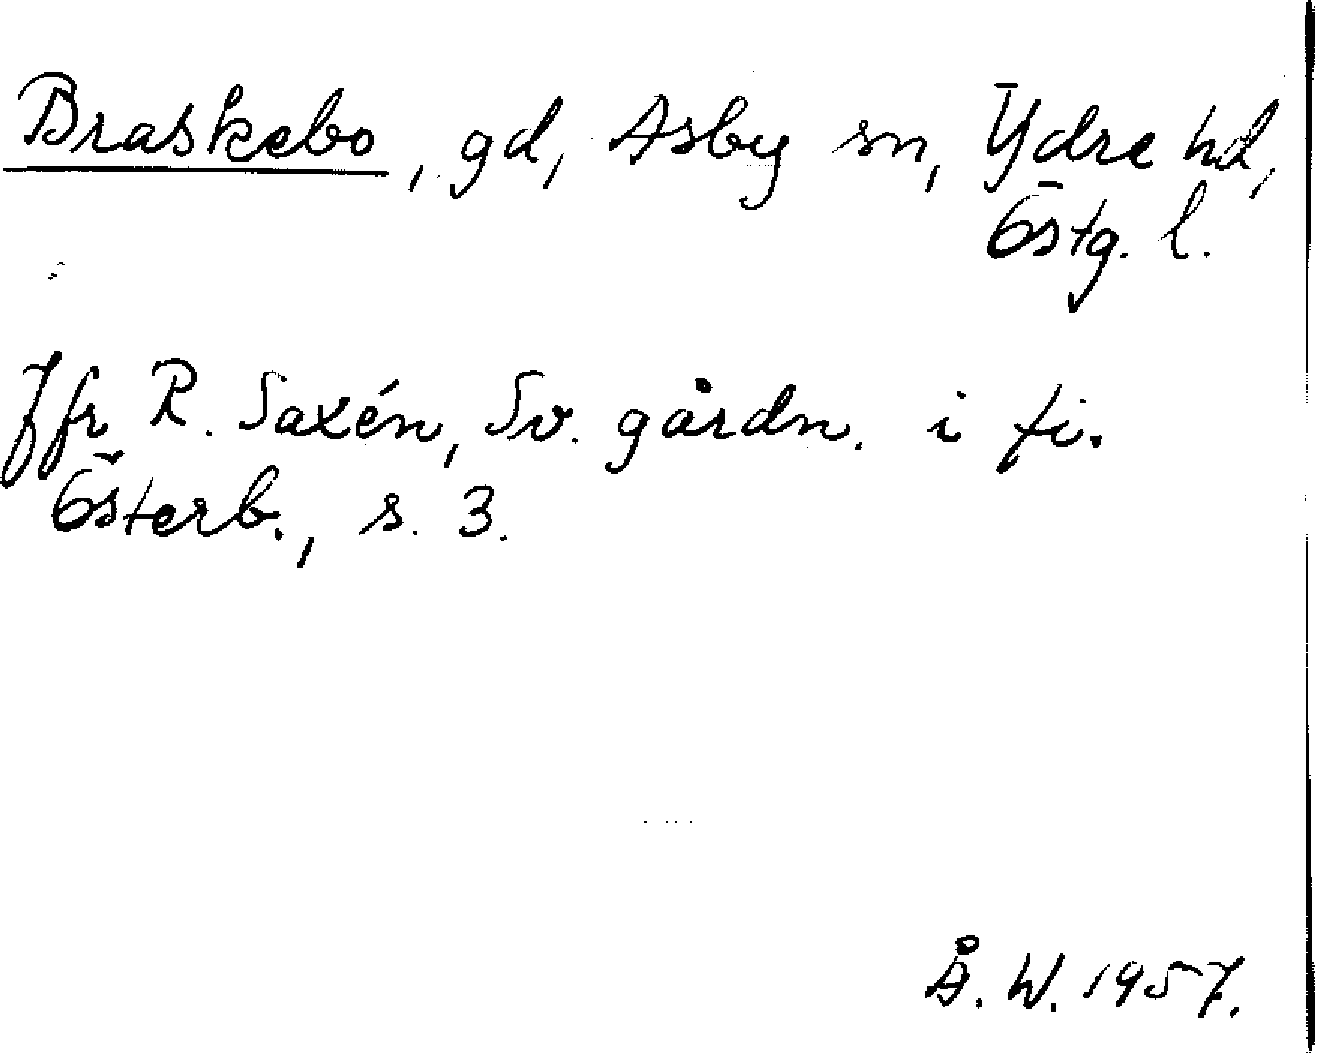 Braskebo, gd, Asby sn, Ydre hd,
Östg. l.
Jfr R. Saxén, Sv. gårdn. i fi.
Österb., s. 3.
Å. W. 1957.